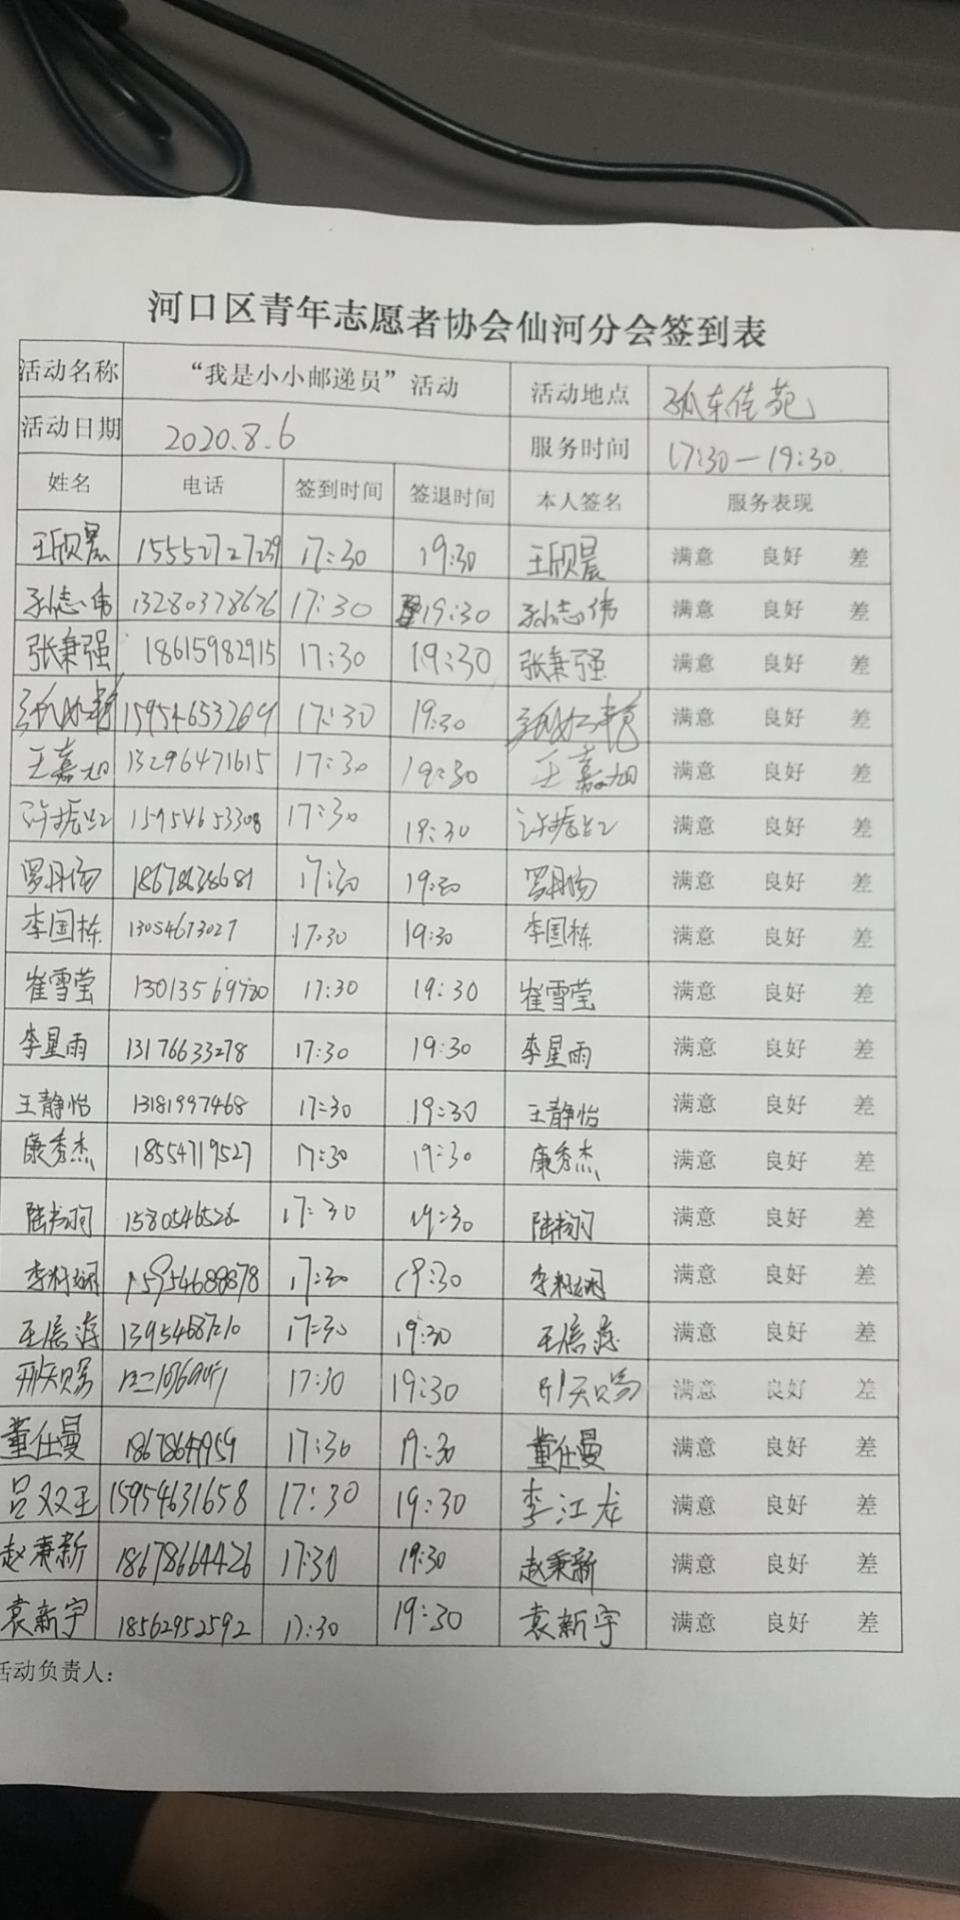 河口区青年志愿者协会仙河分会签到表
活动名称 “我是小小邮递员”活动 活动地点 孤东佳苑
活动日期 2020.8.6 服务时间 17:30—19:30
姓名 电话 签到时间 签退时间 本人签名 服务表现
王欣晨 15552727239 17:30 19:30 王欣晨 满意 良好 差
孙志伟 13280378676 17:30 19:30 孙志伟 满意 良好 差
张秉强 18615982915 17:30 19:30 张秉强 满意 良好 差
17:30 19:30 满意 良好 差
王嘉旭 13296471615 17:30 19:30 王嘉旭 满意 良好 差
15954653308 17:30 19:30 满意 良好 差
罗丹阳 17:30 19:30 罗丹阳 满意 良好 差
李国栋 13054673027 17:30 19:30 李国栋 满意 良好 差
崔雪莹 17:30 19:30 崔雪莹 满意 良好 差
李星雨 13176633278 17:30 19:30 李星雨 满意 良好 差
王静怡 13181997468 17:30 19:30 王静怡 满意 良好 差
康秀杰 18554719527 17:30 19:30 康秀杰 满意 良好 差
17:30 19:30 满意 良好 差
15954688878 17:30 19:30 满意 良好 差
17:30 19:30 满意 良好 差
17:30 19:30 满意 良好 差
董仕曼 17:30 19:30 董仕曼 满意 良好 差
吕双玉 15954631658 17:30 19:30 李江龙 满意 良好 差
赵秉新 18678664426 17:30 19:30 赵秉新 满意 良好 差
袁新宇 18562952592 17:30 19:30 袁新宇 满意 良好 差
活动负责人：